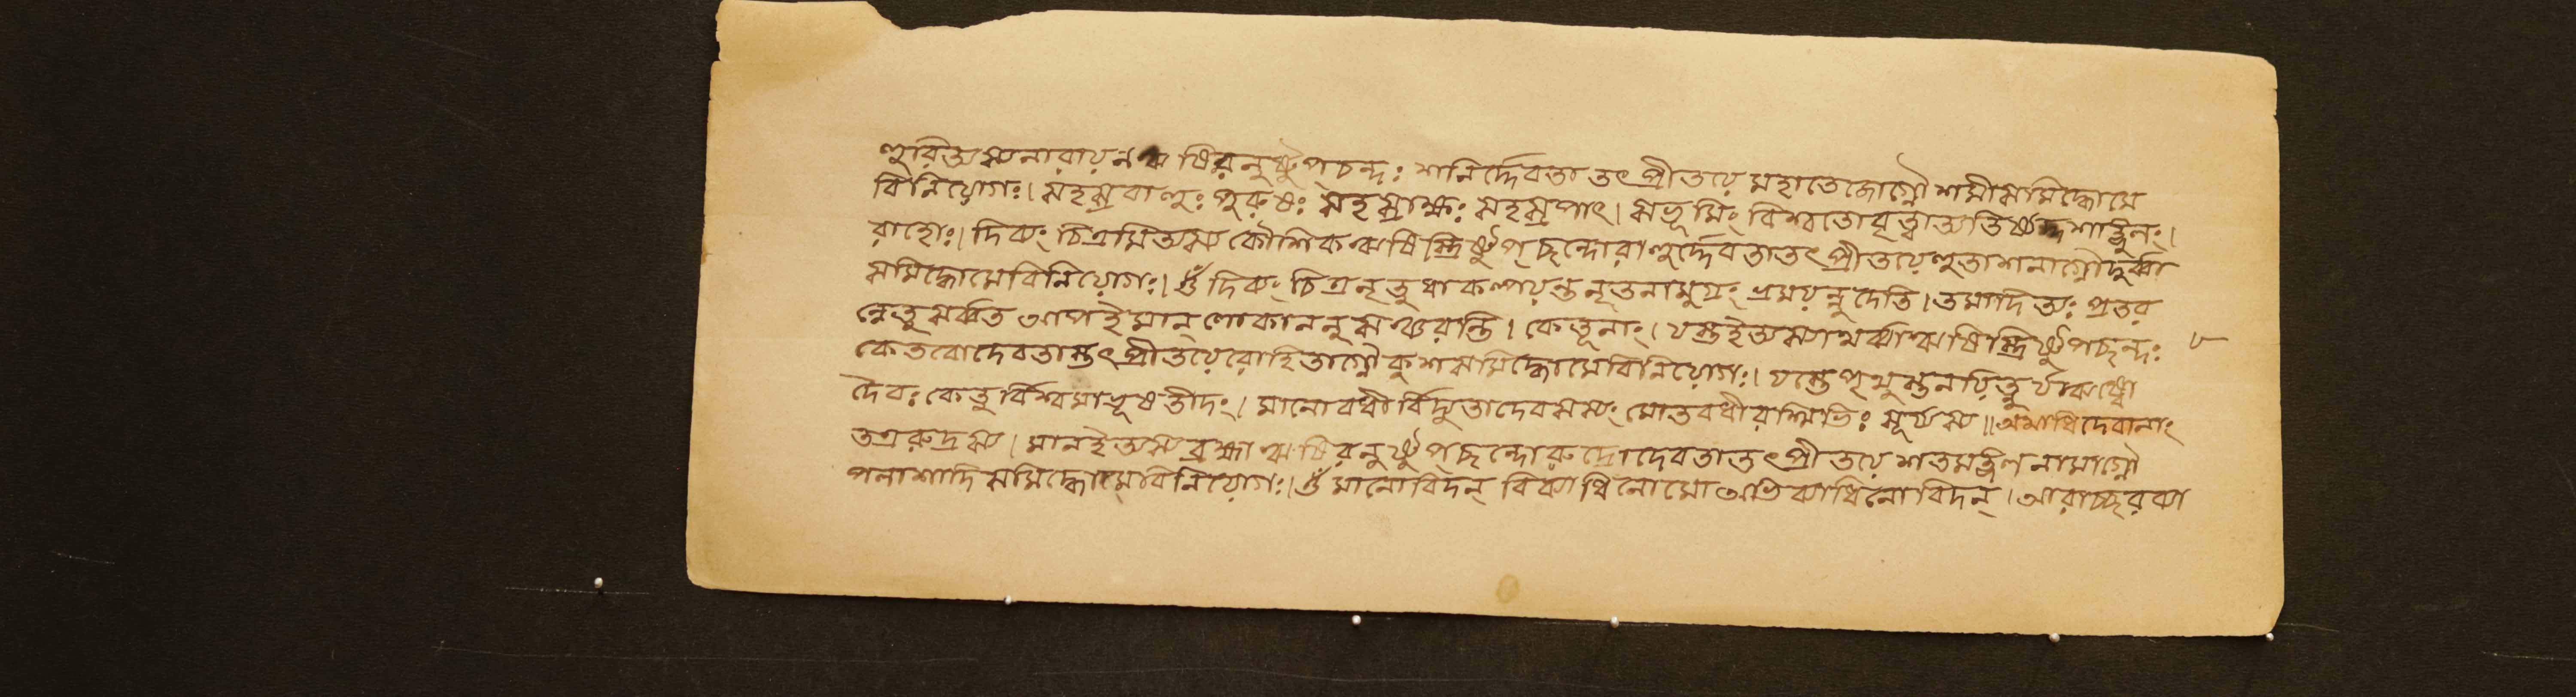 হুরিত্যস্য নারায়ন ঋষিরনুষ্টুপ্চন্দঃ শনির্দ্দেবতা তৎপ্রীতয়ে মহাতেজোগ্নৌ শমীসমিদ্ধোমে
বিনিয়োগঃ। সহস্রবাহুঃ পুরুষঃ সহস্রাক্ষঃ সহস্রপাৎ। সভূমিং বিশ্বতোবৃত্বাত্যতিষ্ঠদ্দশাঙ্গুলং।
রাহোঃ। দিব্যং চিত্রমিত্যস্য কৌশিকঋষিস্ত্রিষ্টুপ্ছন্দোরাহুর্দ্দেবতাতৎপ্রীতয়েহুতাশনাগ্নৌদুর্ব্বা
সমিদ্ধোমেবিনিয়োগঃ। ওঁ দিব্যং চিত্রনৃতুধাকল্পয়ন্তনৃতনামুগ্রং ভ্রময়ন্নুদেতি। তমাদিত্যঃ প্রতর
ন্নেতুসর্ব্বত আপইমান্ লোকাননুসঞ্চরান্তি। কেতূনাং। যস্তইত্যস্যাথর্ব্বাঋষিস্ত্রিষ্টুপছন্দঃ ৮
কেতবোদেবতাস্তৎপ্রীতয়েরোহিতাগ্নৌকুশসমিদ্ধোমেবিনিয়োগঃ। যস্তেপৃথুস্তনয়িত্নুর্যঋষ্বো
দৈবঃ কেতুর্বিশ্বমাভূষতীদং। মানোবধীর্বিদ্যুতাদেবসস্যং মোতবধীরশ্মিভিঃ সূর্য্যস্য॥ অথাধিদেবানাং
তত্ররুদ্রস্য। মানইত্যস্যব্রহ্মাঋষিরনুষ্টুপ্ছন্দোরুদ্রোদেবতাতৎপ্রীতয়ে শতমঙ্গলনামাগ্নৌ
পলাশাদিসমিদ্ধোমেবিনিয়োগঃ। ওঁ মানোবিদন্ বিব্যাধিনোমোঅভিব্যাধিনোবিদন্। আরাচ্ছরব্যা